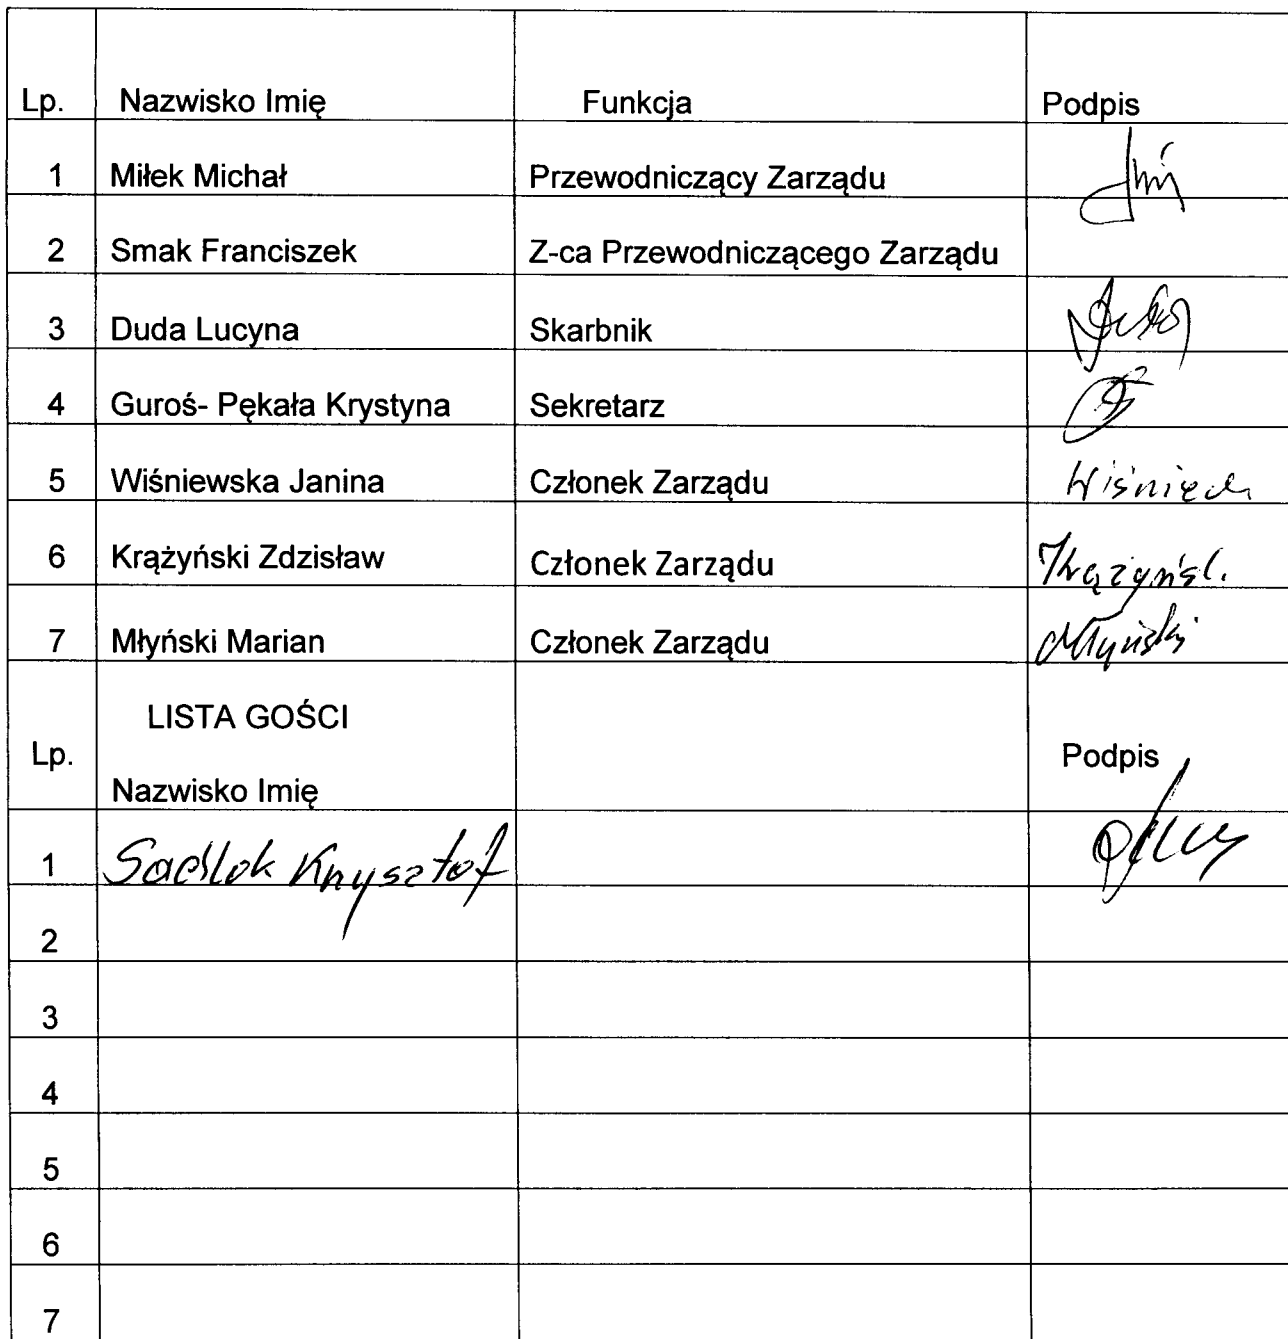 Lp. Nazwisko Imię Funkcja Podpis
1 Miłek Michał Przewodniczący Zarządu
2 Smak Franciszek Z-ca Przewodniczącego Zarządu
3 Duda Lucyna Skarbnik
4 Guroś- Pękała Krystyna Sekretarz
5 Wiśniewska Janina Członek Zarządu
6 Krążyński Zdzisław Członek Zarządu
7 Młyński Marian Członek Zarządu Młyński
LISTA GOŚCI
Lp. Podpis
Nazwisko Imię
1 Sadlok Krzysztof
2
3
4
5
6
7